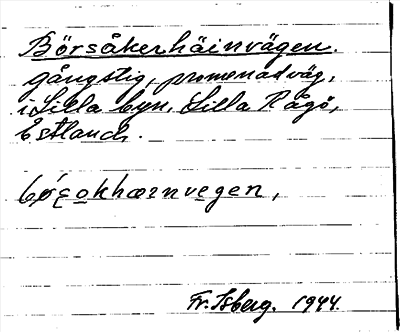 Börsåkerhäinvägen.
gångstig, promenadväg,
i Lilla byn, Lilla Rågö,
Estland.
bøʹʂokhærnvegen,
Fr. Isberg. 1944.